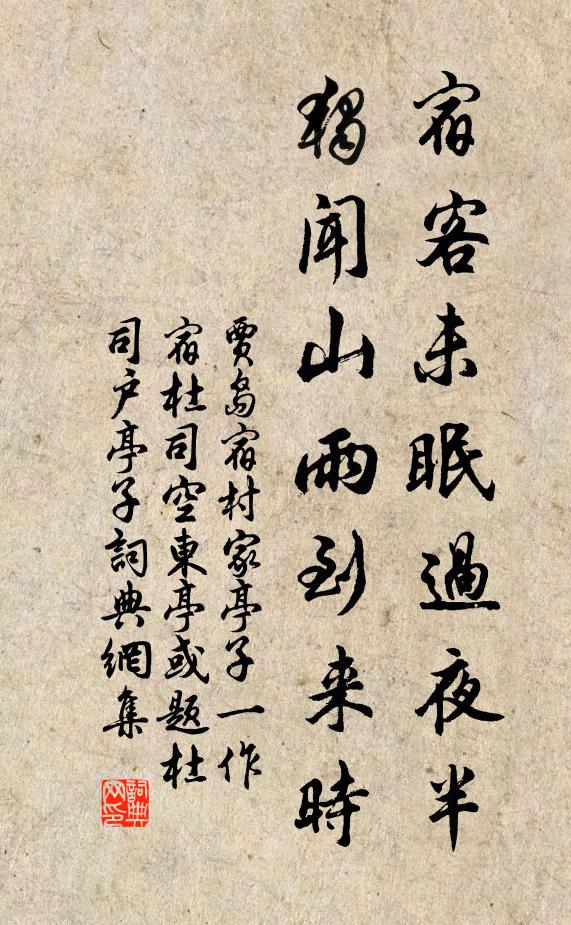 宿客未眠過夜半
獨聞山雨到来時
賈島宿村家亭子一作
宿杜司空東亭或題杜
司户亭子詞典網集
詞典网印